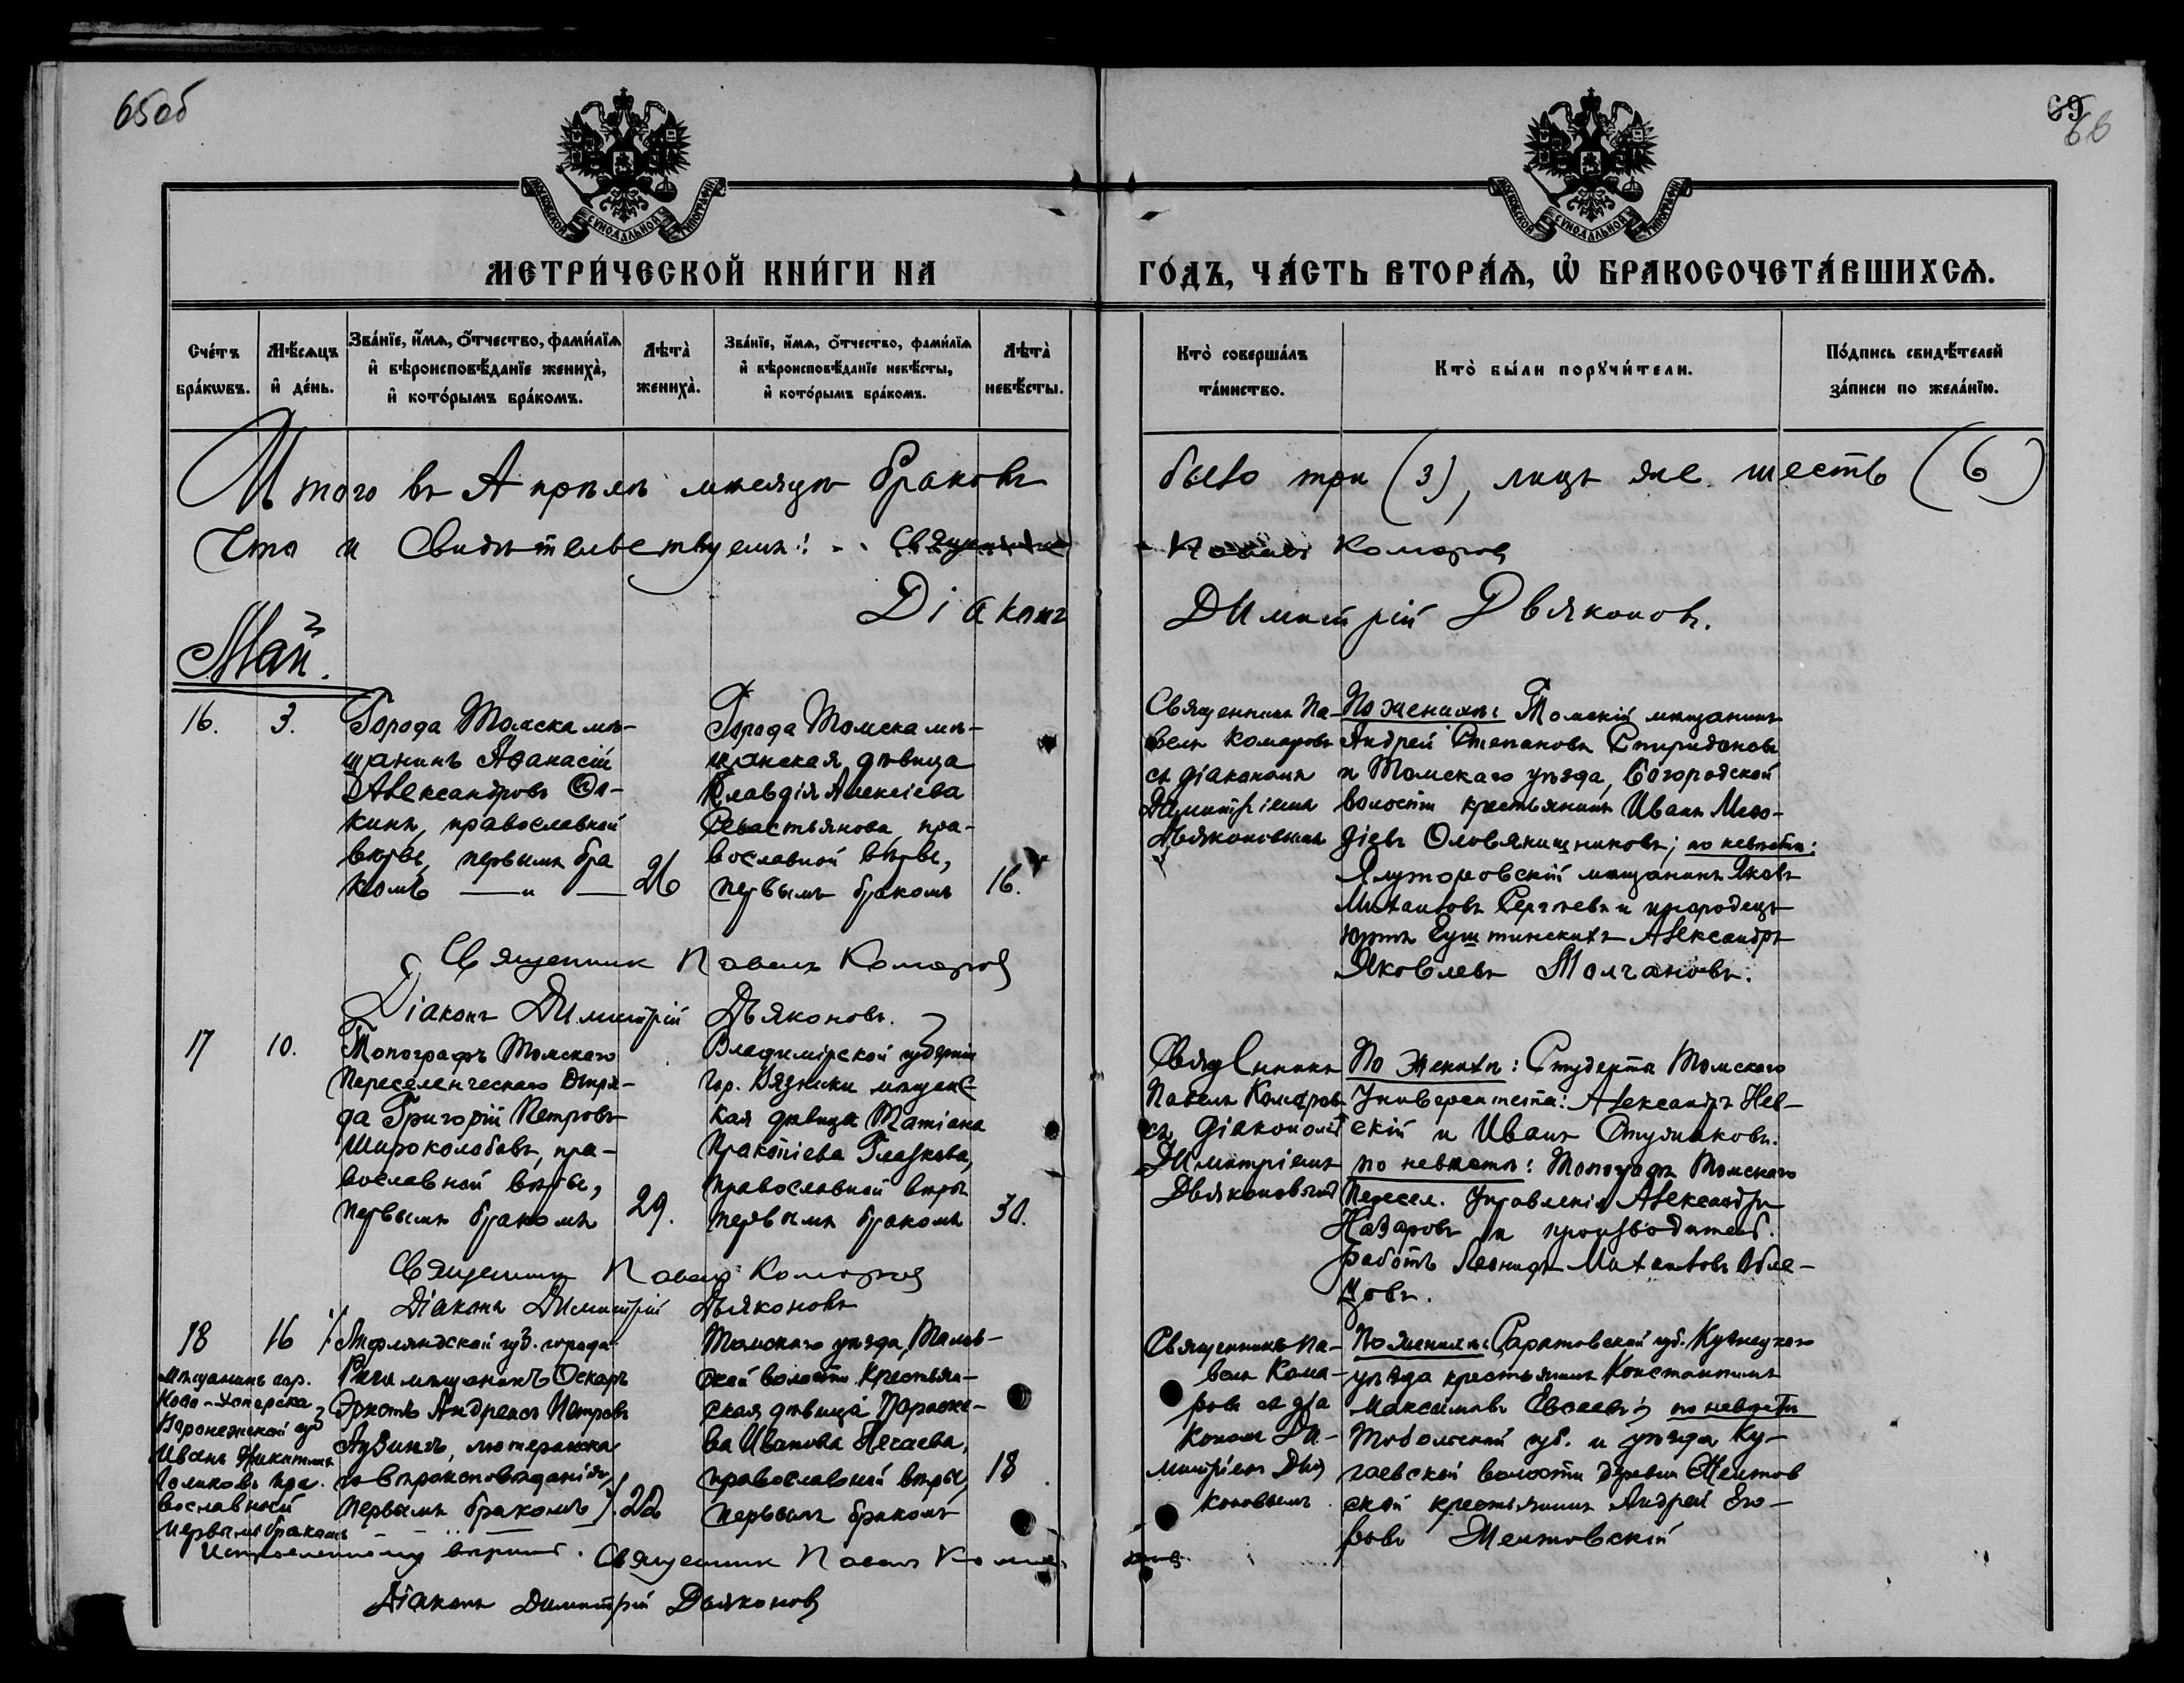 65об
69
66
МОСКОВСКОЙ СѴНОДАЛЬНОЙ ТИПОГРАФІИ
МОСКОВСКОЙ СѴНОДАЛЬНОЙ ТИПОГРАФІИ
МЕТРИ́ЧЕСКОЙ КНИ́ГИ НА
ГО́ДЪ, ЧА́СТЬ ВТОРА́Ѧ, Ѽ БРАКОСОЧЕТА́ВШИХСѦ.
Сче́тъ
бра́кѡвъ.
Мѣ́сѧцъ
и҆ де́нь.
Зва́нїе, и҆́мѧ, ѻ҆́тчество, фами́лїѧ
и҆ вѣроисповѣ́данїе жениха̀,
и҆ кото́рымъ бра́комъ.
Лѣта̀
жениха̀.
Зва́нїе, и҆́мѧ, ѻ҆́тчество, фами́лїѧ
и҆ вѣроисповѣ́данїе невѣ́сты,
и҆ кото́рымъ бра́комъ.
Лѣта̀
невѣ́сты.
Кто̀ соверша́лъ
та́инство.
Кто̀ бы́ли порꙋчи́тели.
По́дпись свидѣ́телей
за́писи по жела́нїю.
Итого въ Апрѣлѣ мѣсяцѣ браковъ
было три (3), лицъ же шесть (6)
Что и Свидѣтельствуемъ: Священникъ
Павелъ Комаровъ
Діаконъ
Димитрій Дьяконовъ.
Май.
16.
3.
Города Томска мѣ-
щанинъ Аѳанасій
Александровъ
кинъ, православной
вѣры, первымъ бра
комъ — " —
26
Города Томска мѣ-
щанская дѣвица
Клавдія Алексіева
Севастьянова, пра-
вославной вѣры,
первымъ бракомъ
16.
Священникъ Па-
велъ Комаровъ
съ діакономъ
Димитріемъ
Дьяконовымъ
По женихѣ: Томскій мѣщанинъ
Андрей Степановъ Спиридоновъ
и Томскаго уѣзда, Богородской
волости крестьянинъ Иванъ Меѳо-
діевъ Оловянишниковъ; по невѣстѣ:
Ялуторовскій мѣщанинъ Яковъ
Михаиловъ Сергѣевъ и инородецъ
юртъ Еуштинскихъ Александръ
Яковлевъ Молчановъ.
Священникъ Павелъ Комаровъ
Діаконъ Димитрій Дьяконовъ.
17
10.
Топографъ Томскаго
Переселенческаго Отря-
да Григорій Петровъ
Широколобовъ, пра-
вославной вѣры,
первымъ бракомъ
29.
Владимірской губерніи
гор. Вязники мѣщанс
кая дѣвица Татіана
Прокопіева Глазкова,
православной вѣры
первымъ бракомъ
30.
Священникъ
Павелъ Комаровъ
съ діакономъ
Димитріемъ
Дьяконовымъ
По женихѣ: Студенты Томскаго
Университета: Александръ Нев-
скій и Иванъ Стуляковъ.
по невѣстѣ: Топографъ Томскаго
Пересел. Управленія Александръ
Назаровъ и производитель
работъ Леонидъ Михаиловъ
Священникъ Павелъ Комаровъ
Діаконъ Димитрій Дьяконовъ
18
16
Лифляндской губ. города
Риги мѣщанинъ Оскаръ
Эрнстъ Андреасъ Петровъ
лютеранска
го вѣроисповѣданія,
первымъ бракомъ
22
Мѣщанинъ гор.
Ново-Хоперска
Воронежской губ
Иванъ Никитинъ
Голиковъ пра
вославный
первымъ бракомъ
Исправленному вѣрить.
Томскаго уѣзда,
ской волости крестьян-
ская дѣвица Параске-
ва Иванова Нечаева,
православной вѣры,
первымъ бракомъ
18
Священникъ Па-
велъ Кома-
ровъ съ діа
кономъ Ди-
митріемъ Дья
коновымъ
По женихѣ: Саратовской губ. Кузнецкаго
уѣзда крестьянинъ Константинъ
Максимовъ Евсеевъ; по невѣстѣ
Тобольской губ. и уѣзда Ку-
гаевской волости деревни Желтов
ской крестьянинъ Андрей Его-
ровъ Желтовскій
Священникъ Павелъ Комаровъ
Діаконъ Димитрій Дьяконовъ